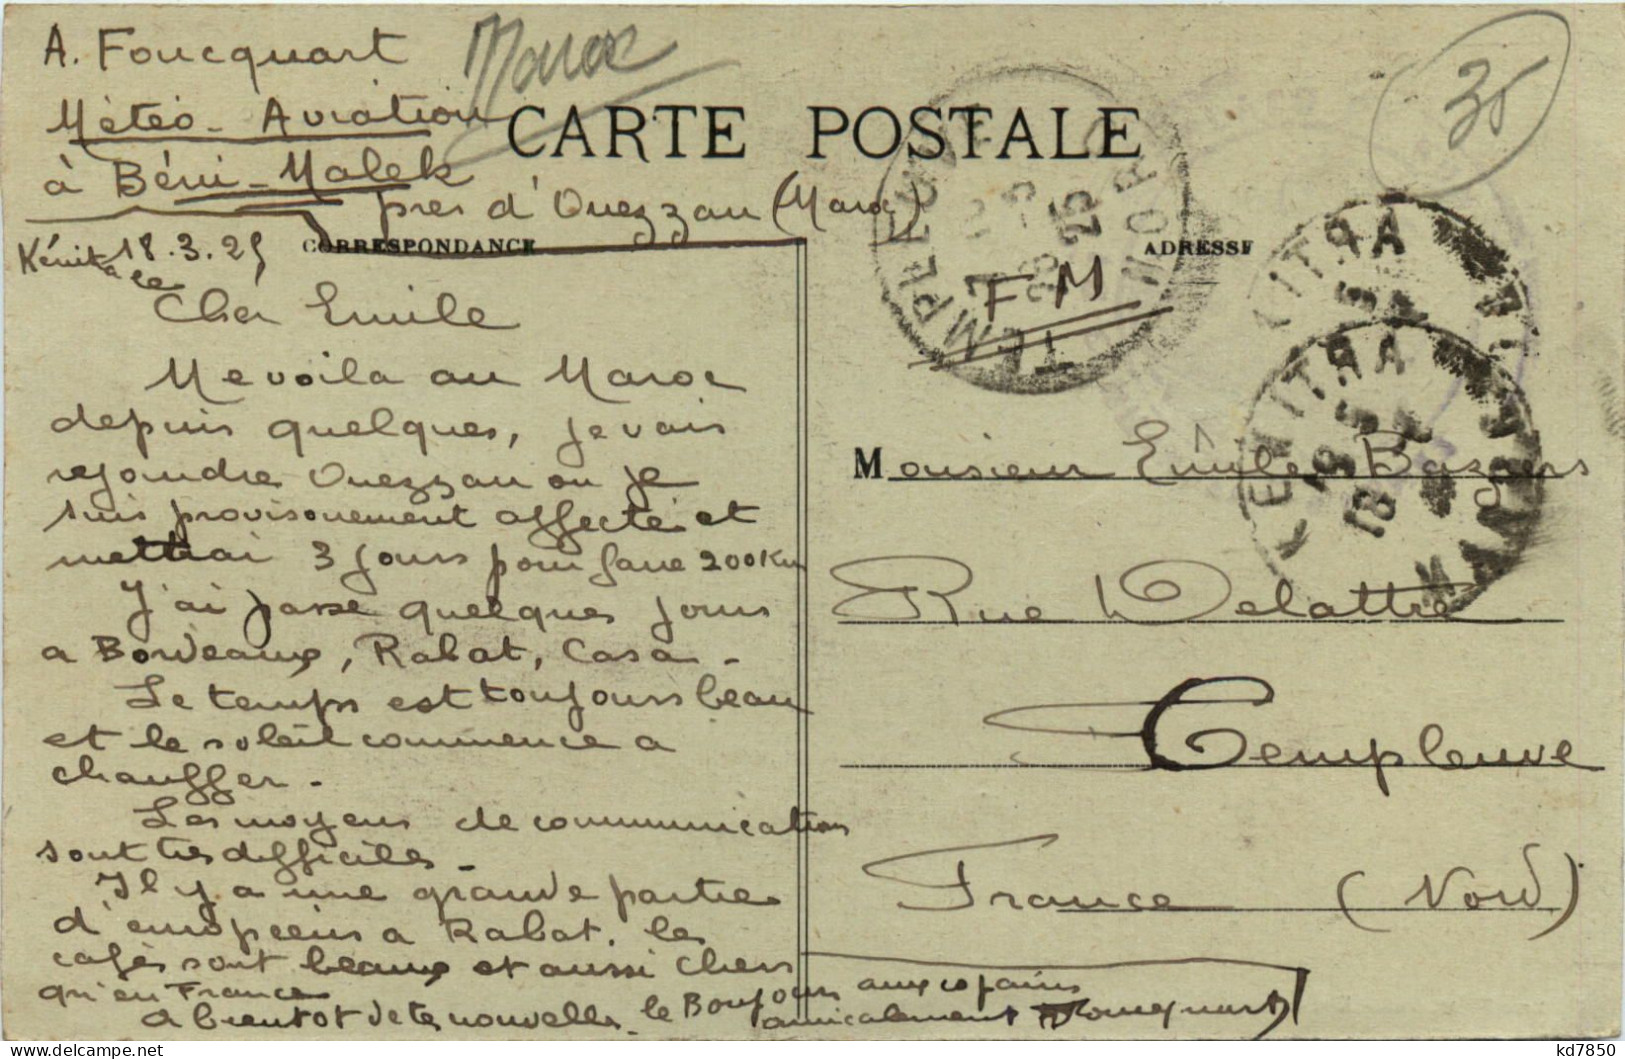 A. Foucquart
Météo - Aviation
à Béni-Malek
près d'Ouezzan (Maroc)
Maroc
35
CARTE POSTALE
CORRESPONDANCE
ADRESSE
F M
TEMPLEUVE
NORD
KENITRA
MAROC
KENITRA
18
MAROC
Kénitra le 18.3.25
Cher Emile
Me voila au Maroc
depuis quelques, je vais
rejoindre Ouezzan ou je
suis provisoirement affecté et
mettrai 3 jours pour faire 200 Km
J'ai passé quelques jours
a Bordeaux, Rabat, Casa -
Le temps est toujours beau
et le soleil commence a
chauffer -
Les moyens de communications
sont très difficiles -
Il y a une grande partie
d'européens a Rabat, les
cafés sont beaux et aussi chers
qu'en France
a bientot de tes nouvelles - le Bonjour aux copains
amicalement Foucquart
Monsieur Emile
Rue Delattre
Templeuve
France (Nord)
kd7850